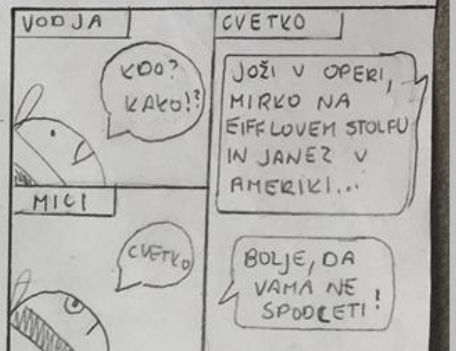 VODJA
KDO?
KAKO!?
MICI
CVETKO
CVETKO
JOŽI V OPERI,
MIRKO NA
EIFFLOVEM STOLPU
IN JANEZ V
AMERIKI...
BOLJE, DA
VAMA NE
SPODLETI!